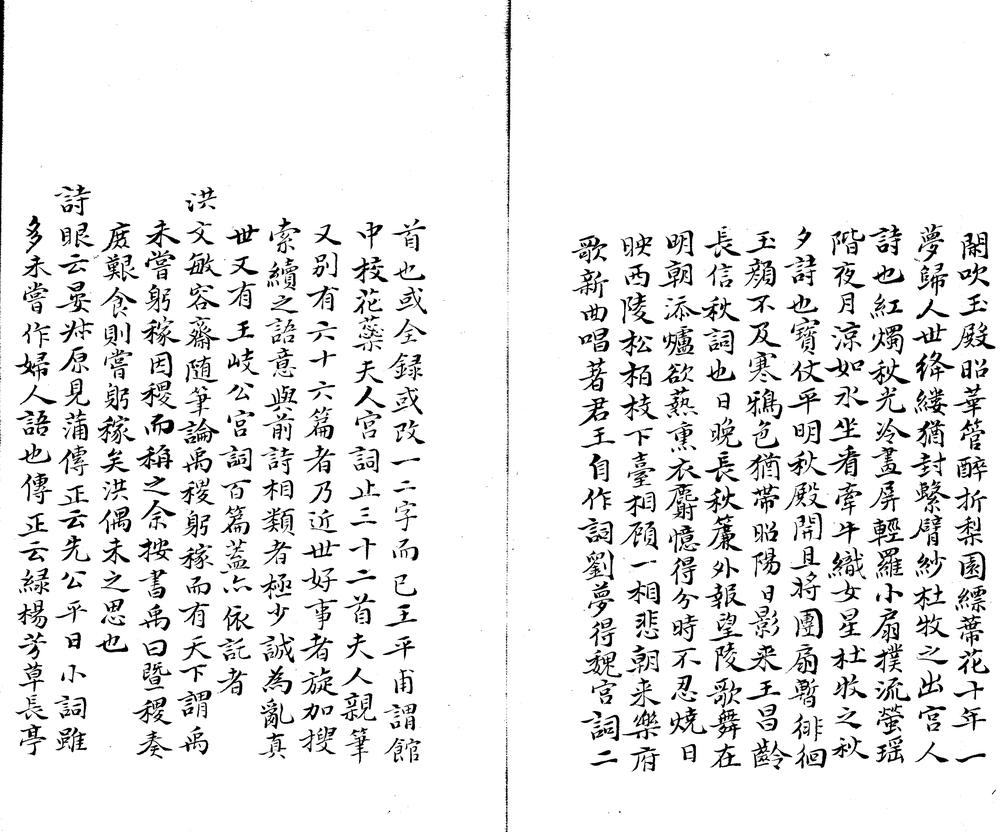 閑吹玉殿昭華管醉折梨園縹蔕花十年一
夢歸人世絳縷猶封繫臂紗杜牧之出宮人
詩也紅燭秋光冷畫屏輕羅小扇撲流螢瑶
階夜月涼如水坐看牽牛織女星杜牧之秋
夕詩也寶仗平明秋殿開且將團扇暫徘徊
玉顔不及寒鴉色猶帶昭陽日影来王昌齡
長信秋詞也日晚長秋簾外報望陵歌舞在
明朝添爐欲爇熏衣麝憶得分時不忍燒日
映西陵松栢枝下臺相顧一相悲朝来樂府
歌新曲唱著君王自作詞劉夢得魏宮詞二
首也或全録或改一二字而已王平甫謂館
中校花蘂夫人宮詞止三十二首夫人親筆
又别有六十六篇者乃近世好事者旋加搜
索續之語意與前詩相類者極少誠為亂真
世又有王岐公宮詞百篇蓋亦依託者
洪文敏容齋隨筆論禹稷躬稼而有天下謂禹
未嘗躬稼因稷而稱之余按書禹曰暨稷奏
庶艱食則嘗躬稼矣洪偶未之思也
詩眼云晏叔原見蒲傳正云先公平日小詞雖
多未嘗作婦人語也傳正云緑楊芳草長亭